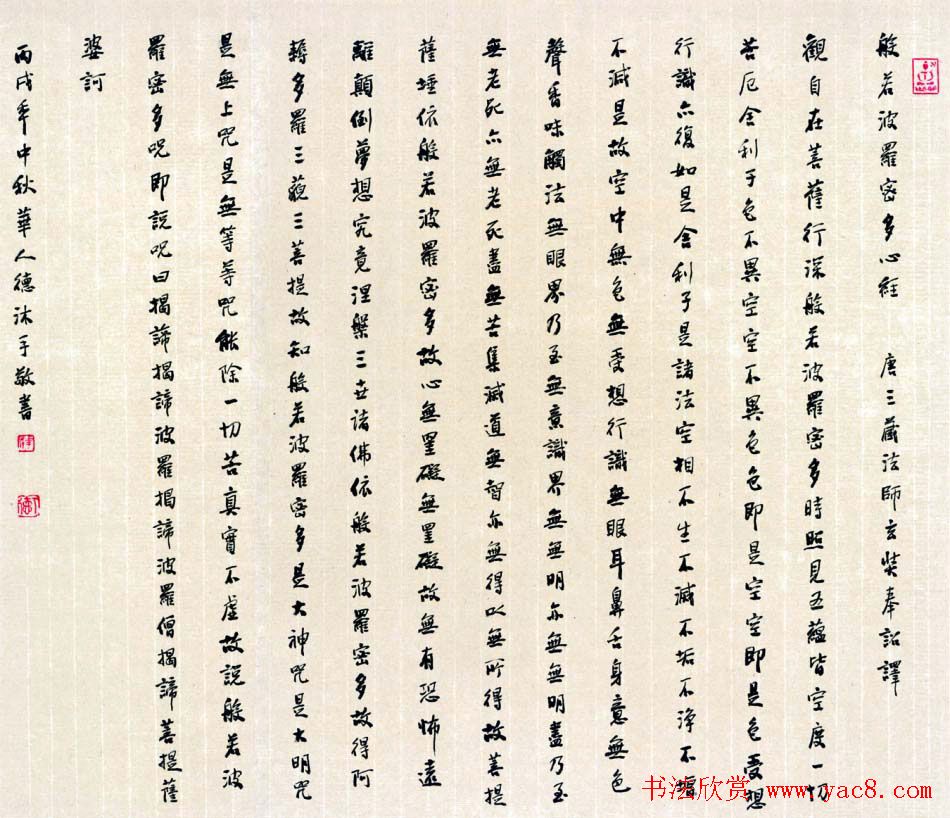 般若波羅密多心經 唐三藏法師玄奘奉詔譯
觀自在菩薩行深般若波羅密多時照見五蘊皆空度一切
苦厄舍利子色不異空空不異色色即是空空即是色受想
行識亦復如是舍利子是諸法空相不生不滅不垢不淨不增
不減是故空中無色無受想行識無眼耳鼻舌身意無色
聲香味觸法無眼界乃至無意識界無無明亦無無明盡乃至
無老死亦無老死盡無苦集滅道無智亦無得以無所得故菩提
薩埵依般若波羅密多故心無罣礙無罣礙故無有恐怖遠
離顛倒夢想究竟涅槃三世諸佛依般若波羅密多故得阿
耨多羅三藐三菩提故知般若波羅密多是大神咒是大明咒
是無上咒是無等等咒能除一切苦真實不虛故說般若波
羅密多咒即說咒曰揭諦揭諦波羅揭諦波羅僧揭諦菩提薩
婆訶
丙戌年中秋華人德沐手敬書
书法欣赏 www.yac8.com